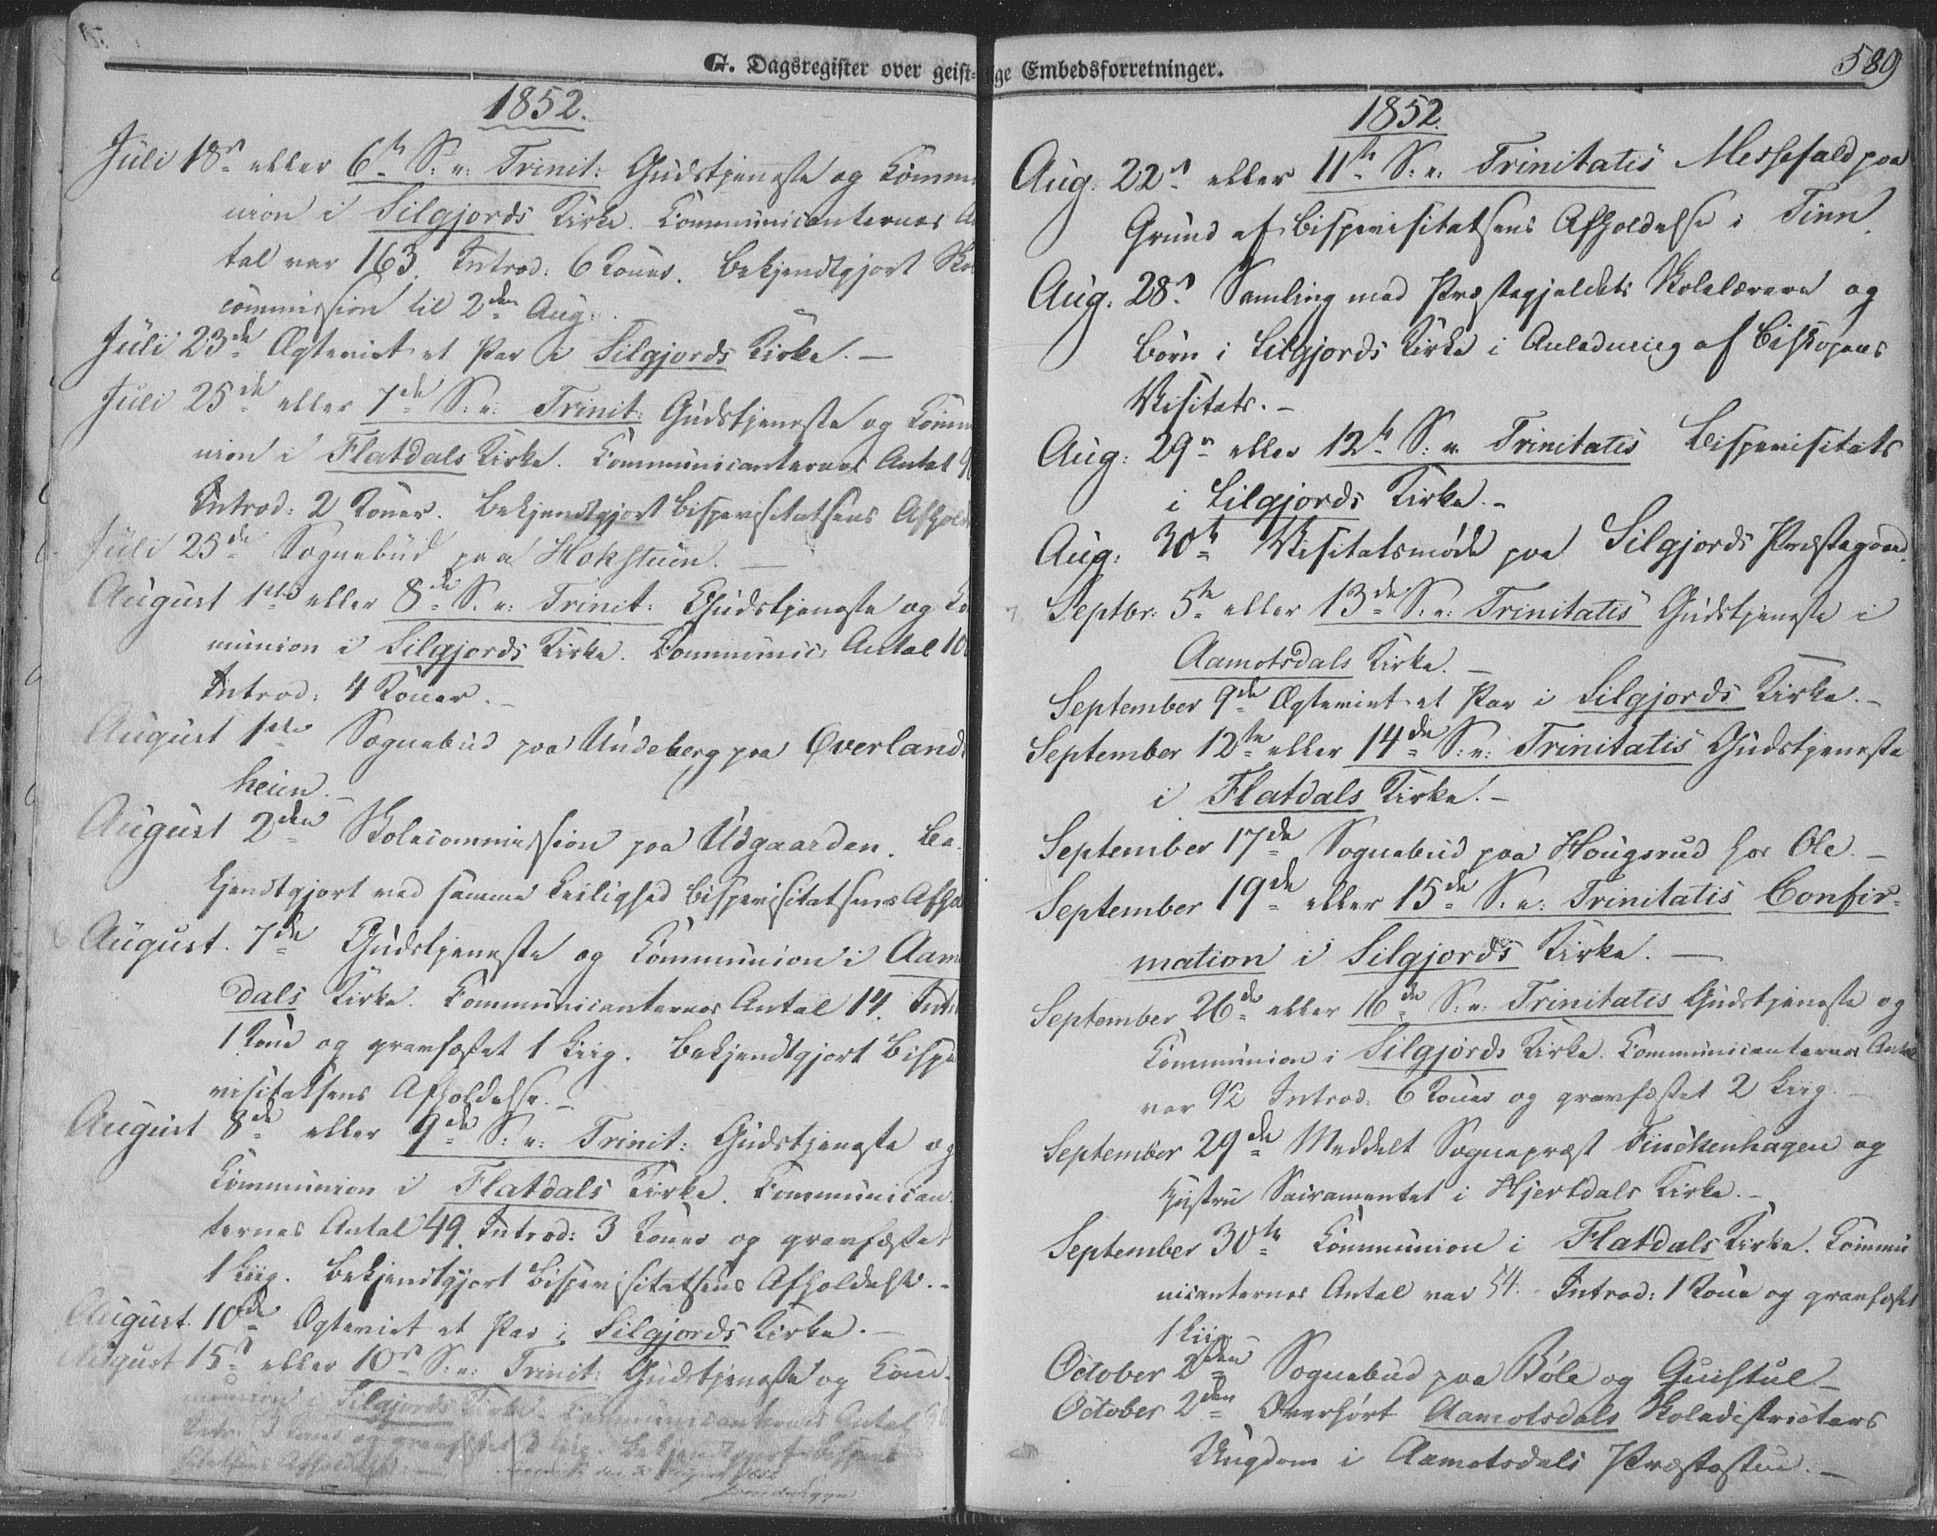 G. Dagsregister over geist-
1852.
Juli 18n eller 6te S. e. Trinit: Gudstjeneste og Commu
nion i Silgjords Kirke. Communicanternes An
tal var 163. Introd: 6 Koner. Bekjendtgjort Skole
commission til 2den Aug.
Juli 23de Ægteviet et Par i Silgjords Kirke. —
Juli 25de eller 7de S. e. Trinit: Gudstjeneste og Commu
nion i Flatdals Kirke. Communicanternes Antal
Introd: 2 Koner. Bekjendtgjort Bispevisitatsens Afhold
Juli 25de Sognebud paa Hokstuen. —
August 1ste eller 8de S. e. Trinit: Gudstjeneste og Co
munion i Silgjords Kirke. Communic: Antal 10
Introd: 4 Koner. —
August 1ste Sognebud paa Undeberg paa Överlands
heien.
August 2den Skolecommission paa Udgaarden. Be-
kjendtgjort ved samme Leilighed Bispevisitatsens Afhol
August. 7de Gudstjeneste og Communion i Aam
dals Kirke. Communicanternes Antal 14. Intr
1 Kone og gravfæstet 1 Liig. Bekjendtgjort Bispe
visitatsens Afholdelse. —
August 8de eller 9de S. e. Trinit: Gudstjeneste og
Communion i Flatdals Kirke. Communican
ternes Antal 49. Introd: 3 Koner og gravfæstet
1 Liig. Bekjendtgjort Bispevisitatsens Afholdelse. -
August. 10de Ægteviet et Par i Silgjords Kirke. —
August 15n eller 10n S. e. Trinit: Gudstjeneste og Com-
munion i Silgjords Kirke. Communicanternes Antal
Intr. 3 Koner og gravfæstet 3 Liig. Bekjendtgjort Bispevi
sitatsens Afholdelse. —
ige Embedsforretninger.
589
1852.
Aug. 22n eller 11te S. e. Trinitatis Messefald paa
Grund af Bispevisitatsens Afholdelse i Tinn.
Aug. 28n Samling med Præstegjeldets Skolelærere og
Børn i Silgjords Kirke i Anledning af Biskopens
Visitats. —
Aug: 29n eller 12te S. e. Trinitatis Bispevisitats
i Silgjords Kirke. -
Aug. 30te Visitatsmøde paa Silgjords Præstegaard.
Septbr: 5te eller 13de S. e. Trinitatis Gudstjeneste i
Aamotsdals Kirke. —
September 9de Ægteviet et Par i Silgjords Kirke. -
September 12te eller 14de S. e. Trinitatis Gudstjeneste
i Flatdals Kirke. -
September 17de Sognebud paa Hougsrud hos Ole. —
September 19de eller 15de S. e. Trinitatis Confir-
mation i Silgjords Kirke. —
September 26de eller 16de S. e. Trinitatis Gudstjeneste og
Communion i Silgjords Kirke. Communicanternes Antal
var 92 Introd. 6 Koner og gravfæstet 2 Liig. —
September 29de Meddelt Sognepræst Finckenhagen og
Hustru Sacramentet i Hjertdals Kirke. -
September 30te Communion i Flatdals Kirke. Commu
nicanternes Antal var 54. Introd: 1 Kone og gravfæstet
1 Liig
October 2den Sognebud paa Böle og Quistul —
October 2den Overhørt Aamotsdals Skoledistricters
Ungdom i Aamotsdals Præstestue. —